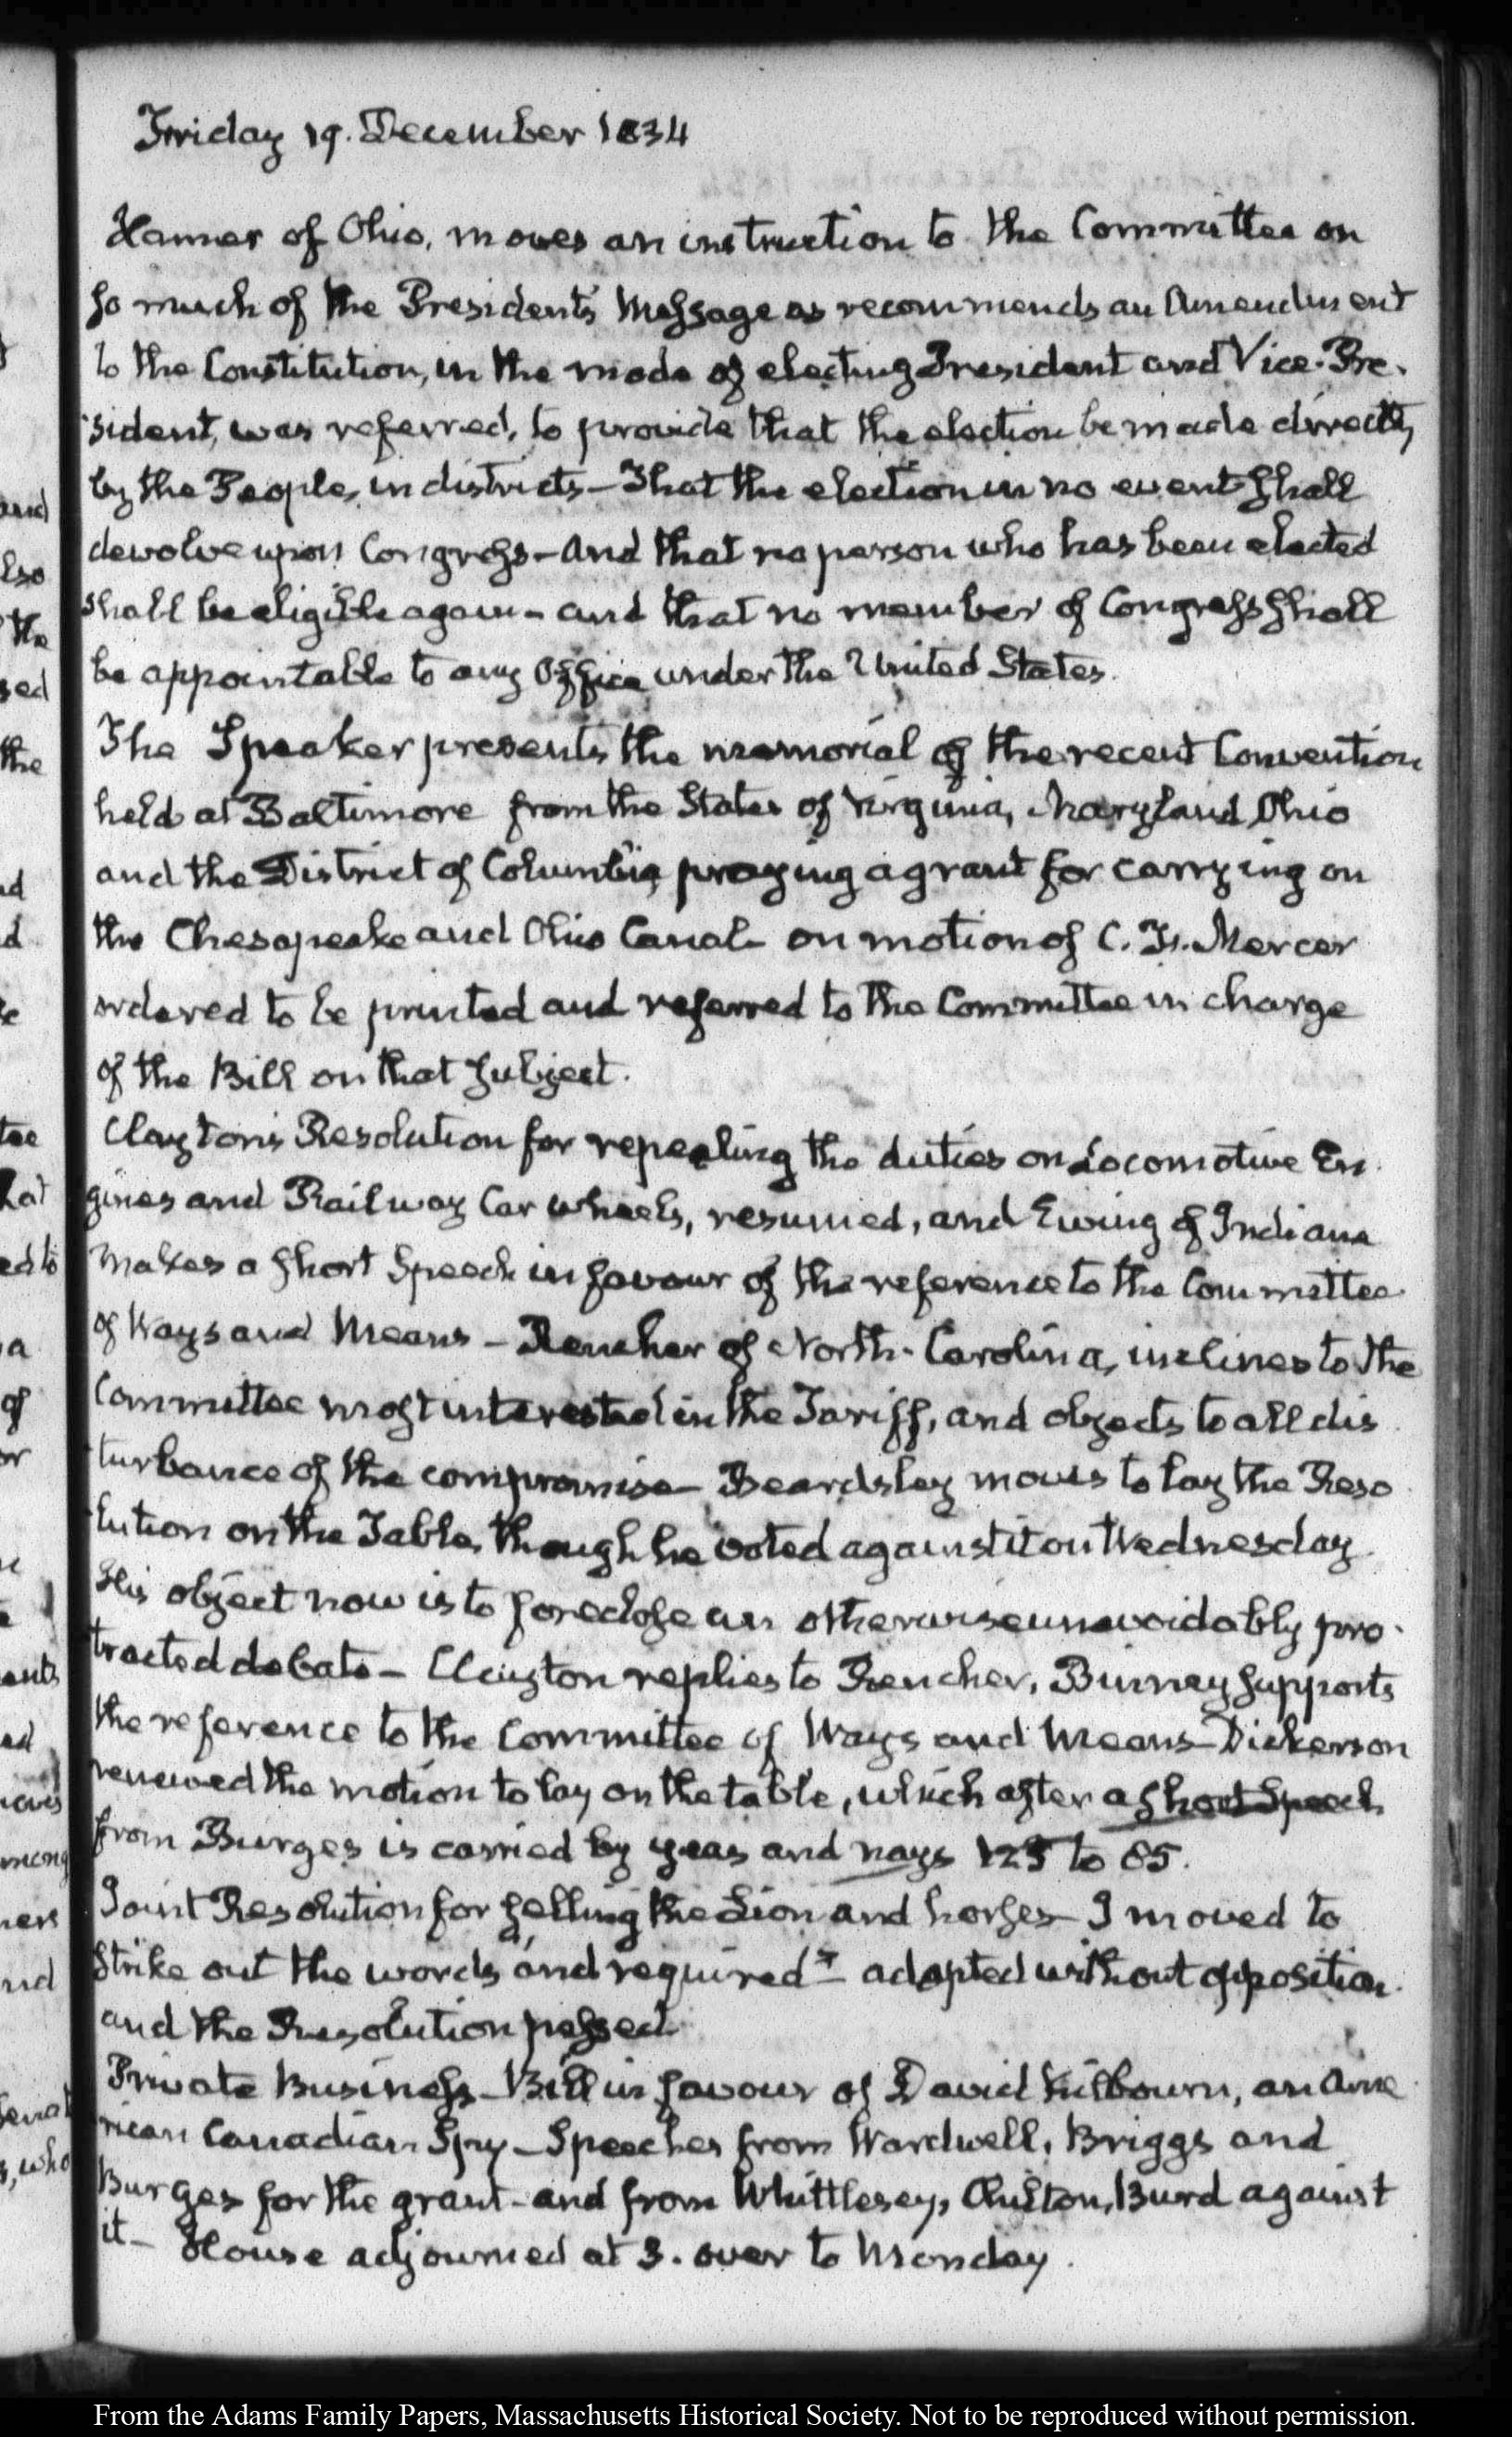 Friday 19. December 1834
Hamer of Ohio, moves an instruction to the Committee on
so much of the President's Message as recommends an Amendment
to the Constitution, in the mode of electing President and Vice-Pre-
sident, was referred, to provide that the election be made directly
by the People, in districts – That the election in no event shall
devolve upon Congress – And that no person who has been elected
shall be eligible again – and that no member of Congress shall
be appointable to any Office under the United States.
The Speaker presents the memorial of the recent Convention
held at Baltimore from the States of Virginia, Maryland, Ohio
and the District of Columbia, praying a grant for carrying on
the Chesapeake and Ohio Canal – on motion of C. F. Mercer
ordered to be printed and referred to the Committee in charge
of the Bill on that subject.
Clayton's Resolution for repealing the duties on Locomotive En
gines and Railway Car wheels, resumed, and Ewing of Indiana
makes a short Speech in favour of the reference to the Committee
of Ways and Means – Rencher of North-Carolina, inclines to the
Committee most interested in the Tariff, and objects to all dis
turbance of the compromise – Beardsley moves to lay the Reso
lution on the Table, though he voted against it on Wednesday
His object now is to foreclose an otherwise unavoidably pro-
tracted debate – Clayton replies to Rencher, Binney supports
the reference to the Committee of Ways and Means – Dickerson
renewed the motion to lay on the table, which after a short Speech
from Burges is carried by yeas and nays 125 to 85.
Joint Resolution for selling the Lion and horses – I moved to
strike out the words "and required" – adopted without opposition
and the Resolution passed
Private Business – Bill in favour of David Kilbourn, an Ame
rican Canadian Spy – Speeches from Wardwell, Briggs and
Burges for the grant – and from Whittlesey, Chilton, Burd against
it – House adjourned at 3. over to Monday.
From the Adams Family Papers, Massachusetts Historical Society. Not to be reproduced without permission.